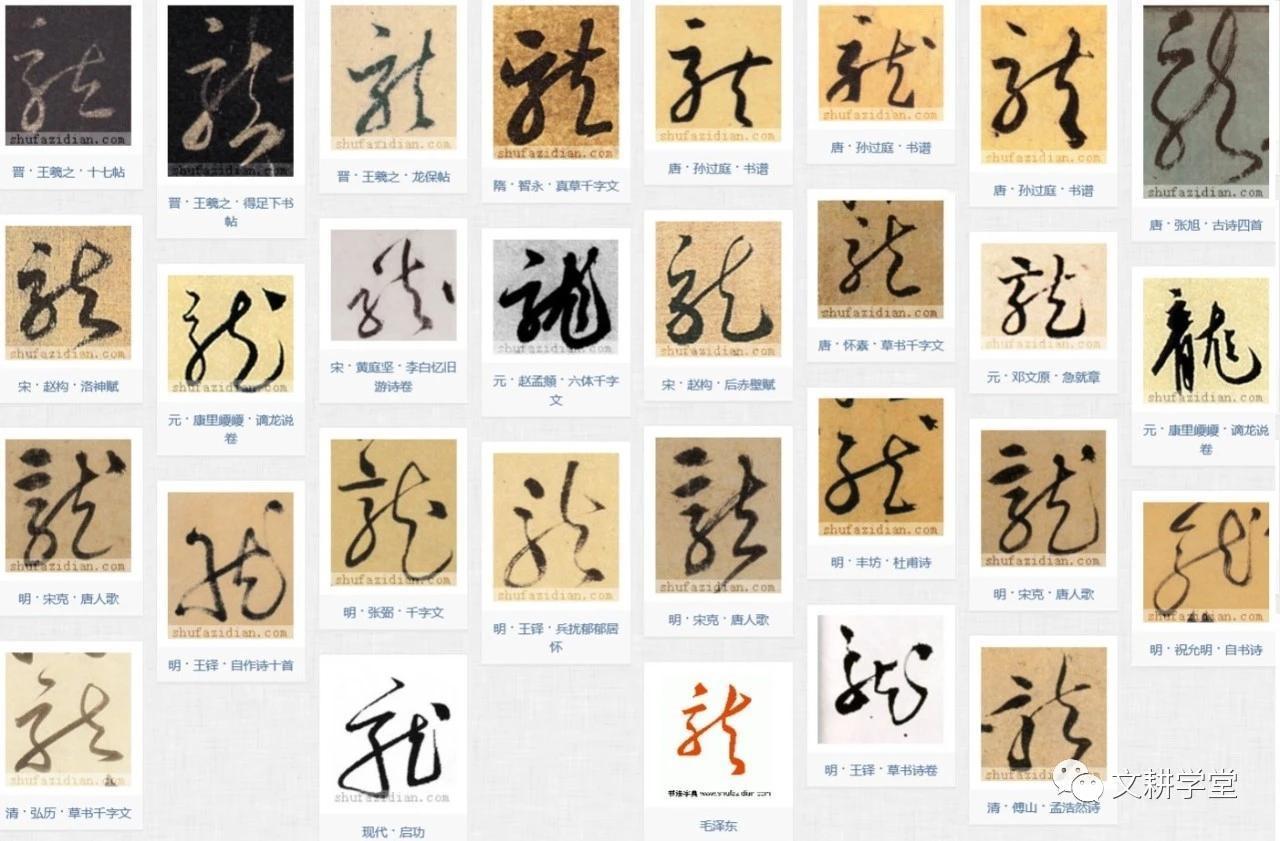 龍
shufazidian.com
晋·王羲之·十七帖
龍
shufazidian.com
晋·王羲之·得足下书
帖
龍
shufazidian.com
晋·王羲之·龙保帖
龍
shufazidian.com
隋·智永·真草千字文
龍
shufazidian.com
唐·孙过庭·书谱
龍
shufazidian.com
唐·孙过庭·书谱
龍
shufazidian.com
唐·孙过庭·书谱
龍
shufazidian.com
唐·张旭·古诗四首
龍
shufazidian.com
宋·赵构·洛神赋
龍
shufazidian.com
元·康里巎巎·谪龙说
卷
龍
shufazidian.com
宋·黄庭坚·李白忆旧
游诗卷
龍
shufazidian.com
元·赵孟頫·六体千字
文
龍
shufazidian.com
宋·赵构·后赤壁赋
龍
shufazidian.com
唐·怀素·草书千字文
龍
shufazidian.com
元·邓文原·急就章
龍
shufazidian.com
元·康里巎巎·谪龙说
卷
龍
shufazidian.com
明·宋克·唐人歌
龍
shufazidian.com
明·王铎·自作诗十首
龍
shufazidian.com
明·张弼·千字文
龍
shufazidian.com
明·王铎·兵扰郁郁居
怀
龍
shufazidian.com
明·宋克·唐人歌
龍
shufazidian.com
明·丰坊·杜甫诗
龍
shufazidian.com
明·宋克·唐人歌
龍
shufazidian.com
明·祝允明·自书诗
龍
shufazidian.com
清·弘历·草书千字文
龍
shufazidian.com
现代·启功
龍
书法字典 www.shufazidian.com
毛泽东
龍
明·王铎·草书诗卷
龍
shufazidian.com
清·傅山·孟浩然诗
文耕学堂